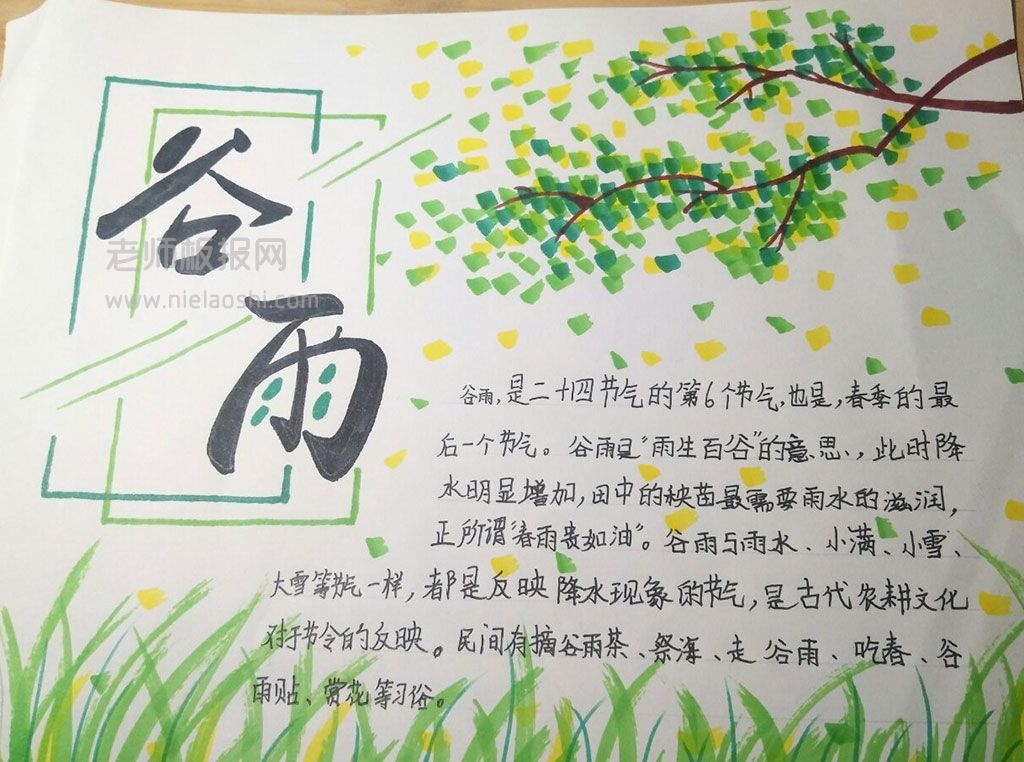 谷
雨
老师板报网
www.nielaoshi.com
谷雨,是二十四节气的第6个节气,也是,春季的最
后一个节气。谷雨是“雨生百谷”的意思、,此时降
水明显增加,田中的秧苗最需要雨水的滋润,
正所谓“春雨贵如油”。谷雨与雨水、小满、小雪、
大雪等节气一样,都是反映降水现象的节气,是古代农耕文化
对于节令的反映。民间有摘谷雨茶、祭海、走谷雨、吃春、谷
雨贴、赏花等习俗。